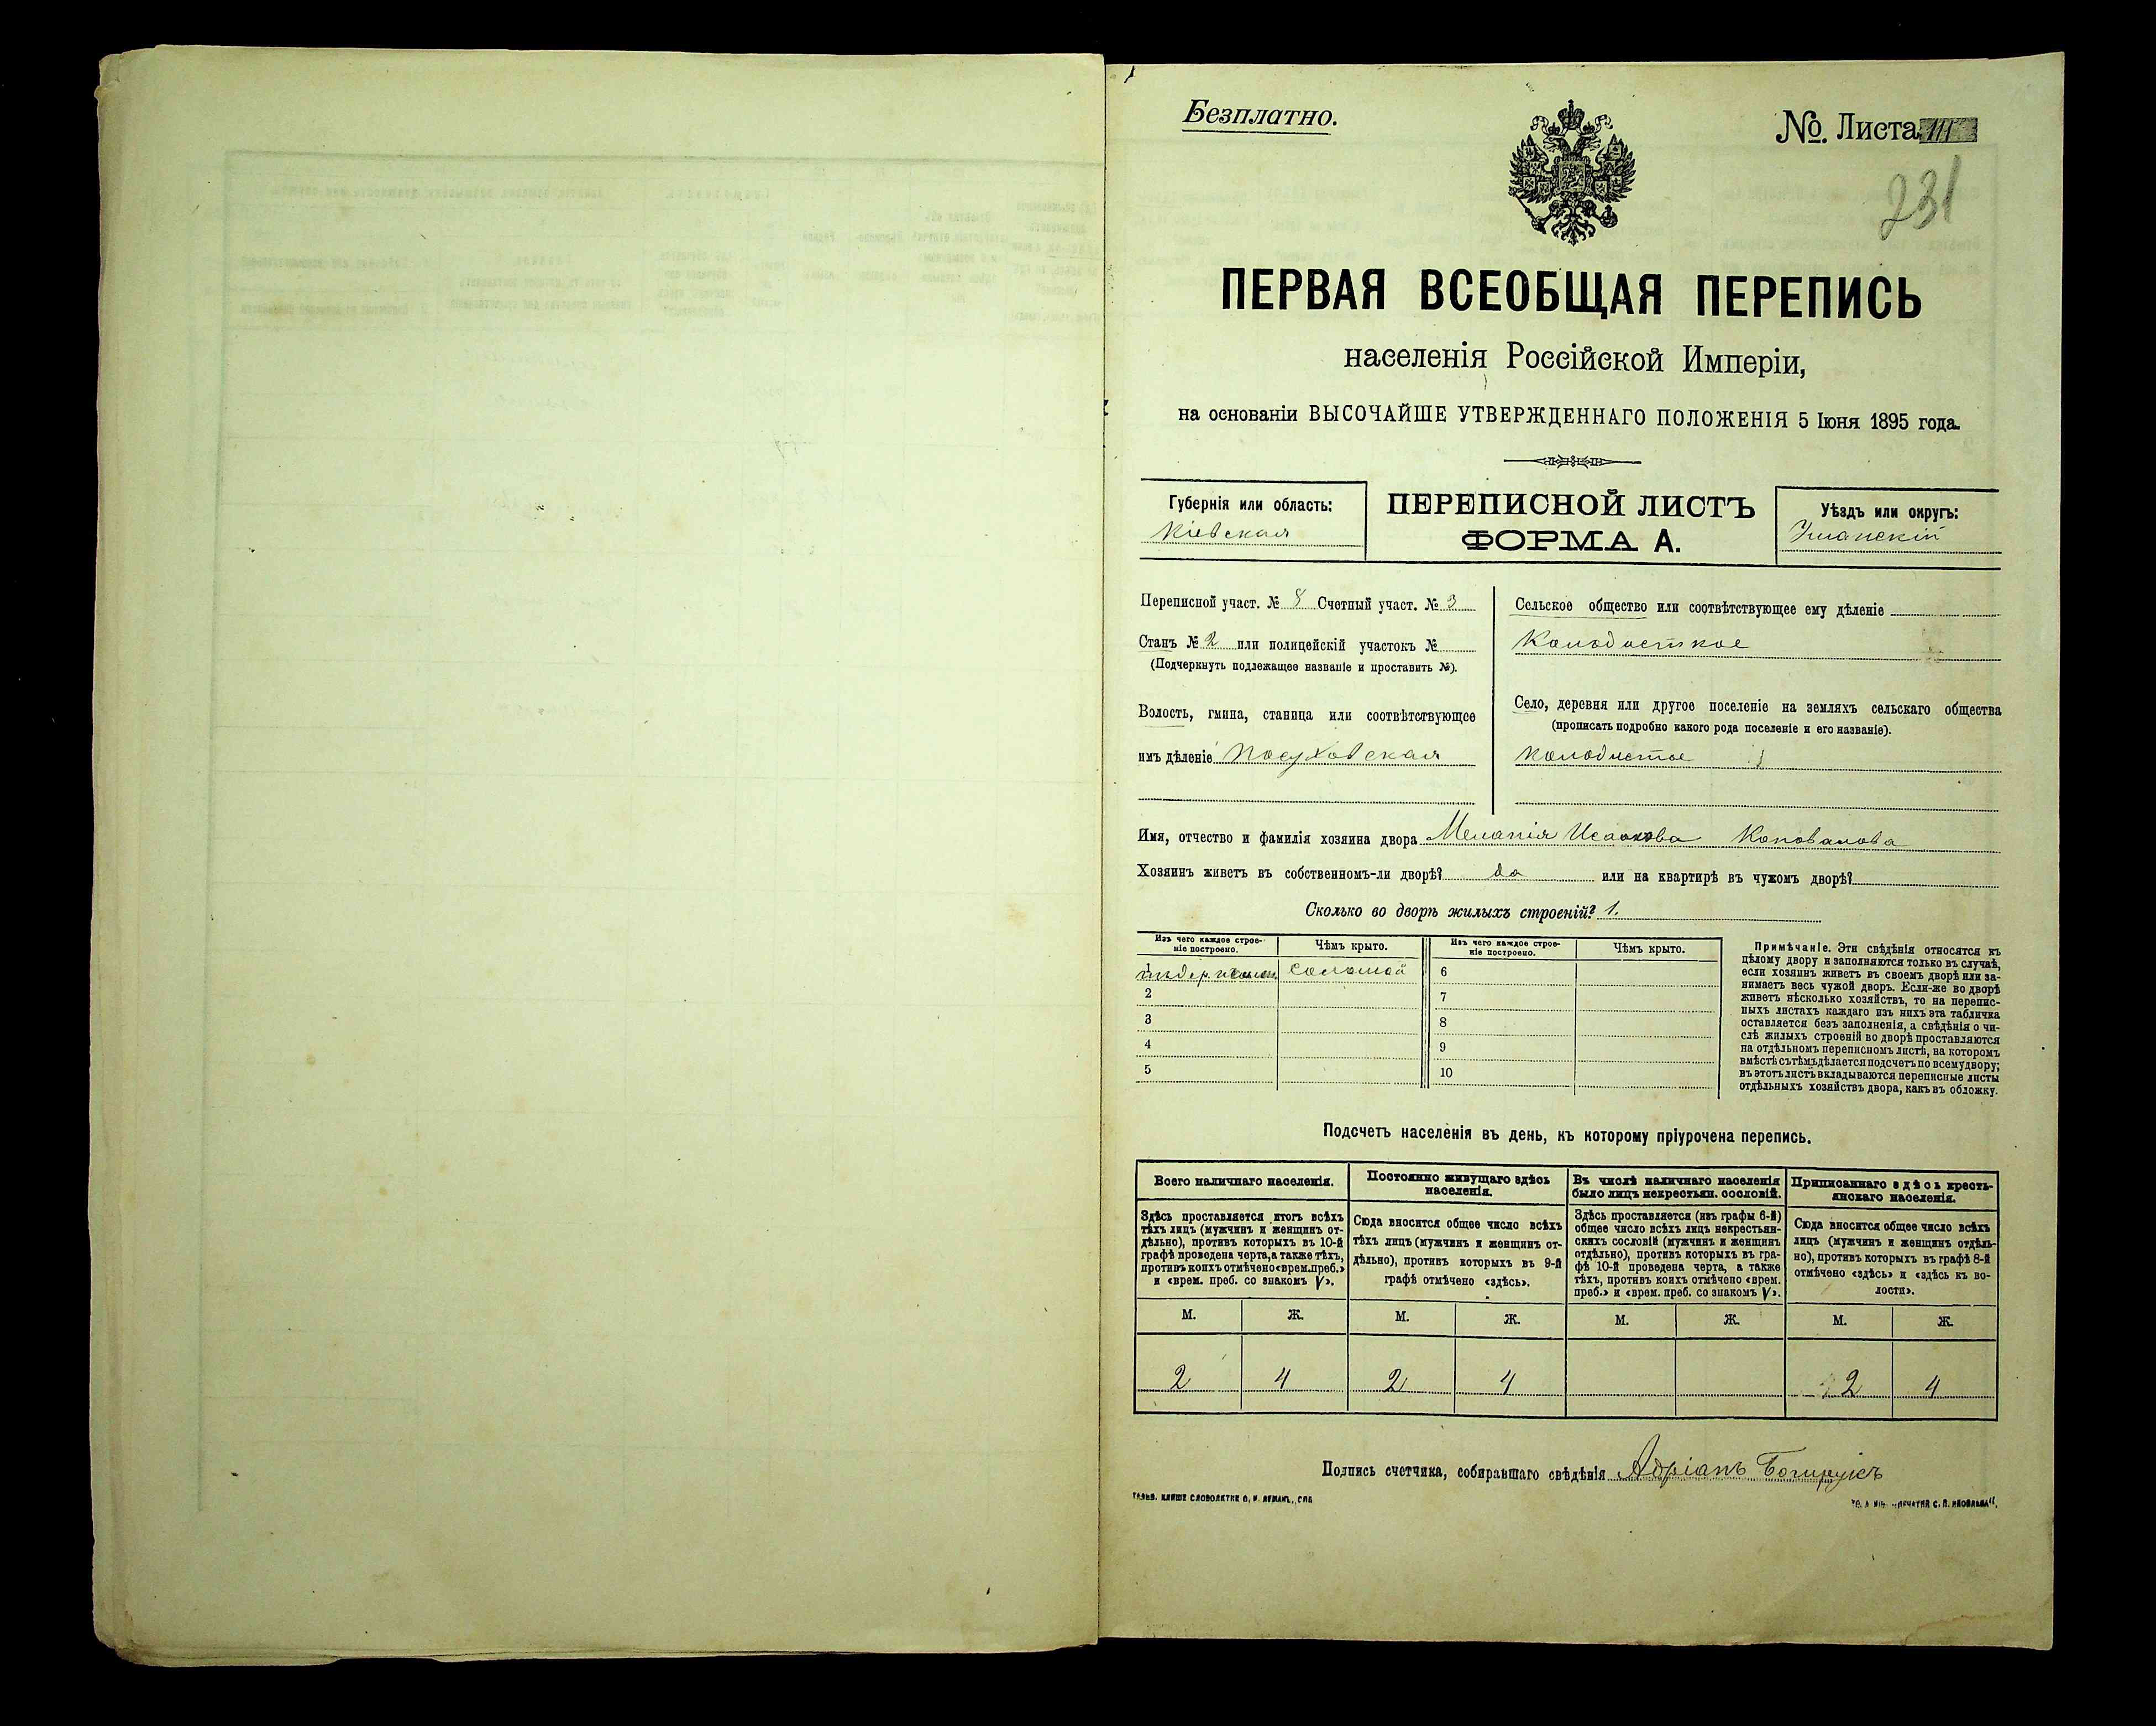 Безплатно.
№. Листа 111
231
ПЕРВАЯ ВСЕОБЩАЯ ПЕРЕПИСЬ
населенія Россійской Имперіи,
на основаніи ВЫСОЧАЙШЕ УТВЕРЖДЕННАГО ПОЛОЖЕНІЯ 5 Іюня 1895 года.
Губернія или область:
Кіевская
ПЕРЕПИСНОЙ ЛИСТЪ
ФОРМА А.
Уѣздъ или округъ:
Уманскій
Переписной участ. № 8 Счетный участ. № 3
Станъ № 2 или полицейскій участокъ №
(Подчеркнуть подлежащее названіе и проставить №).
Волость, гмина, станица или соотвѣтствующее
имъ дѣленіе Посуховская
Сельское общество или соотвѣтствующее ему дѣленіе
Колодисткое
Село, деревня или другое поселеніе на земляхъ сельскаго общества
(прописать подробно какого рода поселеніе и его названіе).
Колодистое
Имя, отчество и фамилія хозяина двора Меланія Исаакова Коновалова
Хозяинъ живетъ въ собственномъ-ли дворѣ? да или на квартирѣ въ чужомъ дворѣ?
Сколько во дворѣ жилыхъ строеній? 1.
Изъ чего каждое строе-
ніе построено.
Чѣмъ крыто.
Изъ чего каждое строе-
ніе построено.
Чѣмъ крыто.
1 Соломой 6
2 7
3 8
4 9
5 10
Примѣчаніе. Эти свѣдѣнія относятся къ
цѣлому двору и заполняются только въ случаѣ,
если хозяинъ живетъ въ своемъ дворѣ или за-
нимаетъ весь чужой дворъ. Если-же во дворѣ
живетъ нѣсколько хозяйствъ, то на перепис-
ныхъ листахъ каждаго изъ нихъ эта табличка
оставляется безъ заполненія, а свѣдѣнія о чи-
слѣ жилыхъ строеній во дворѣ проставляются
на отдѣльномъ переписномъ листѣ, на которомъ
вмѣстѣ съ тѣмъ дѣлается подсчетъ по всему двору;
въ этотъ листъ вкладываются переписные листы
отдѣльныхъ хозяйствъ двора, какъ въ обложку.
Подсчетъ населенія въ день, къ которому пріурочена перепись.
Всего наличнаго населенія.
Здѣсь проставляется итогъ всѣхъ
тѣхъ лицъ (мужчинъ и женщинъ от-
дѣльно), противъ которыхъ въ 10-й
графѣ проведена черта, а также тѣхъ,
противъ коихъ отмѣчено «врем. преб.»
и «врем. преб. со знакомъ V».
Постоянно живущаго здѣсь
населенія.
Сюда вносится общее число всѣхъ
тѣхъ лицъ (мужчинъ и женщинъ от-
дѣльно), противъ которыхъ въ 9-й
графѣ отмѣчено «здѣсь».
Въ числѣ наличнаго населенія
было лицъ некрестьян. сословій.
Здѣсь проставляется (изъ графы 6-й)
общее число всѣхъ лицъ некрестьян-
скихъ сословій (мужчинъ и женщинъ
отдѣльно), противъ которыхъ въ гра-
фѣ 10-й проведена черта, а также
тѣхъ, противъ коихъ отмѣчено «врем.
преб.» и «врем. преб. со знакомъ V».
Приписаннаго здѣсь кресть-
янскаго населенія.
Сюда вносится общее число всѣхъ
лицъ (мужчинъ и женщинъ отдѣль-
но), противъ которыхъ въ графѣ 8-й
отмѣчено «здѣсь» и «здѣсь къ во-
лости».
М. Ж. М. Ж. М. Ж. М. Ж.
2 4 2 4 2 4
Подпись счетчика, собиравшаго свѣдѣнія Адріанъ